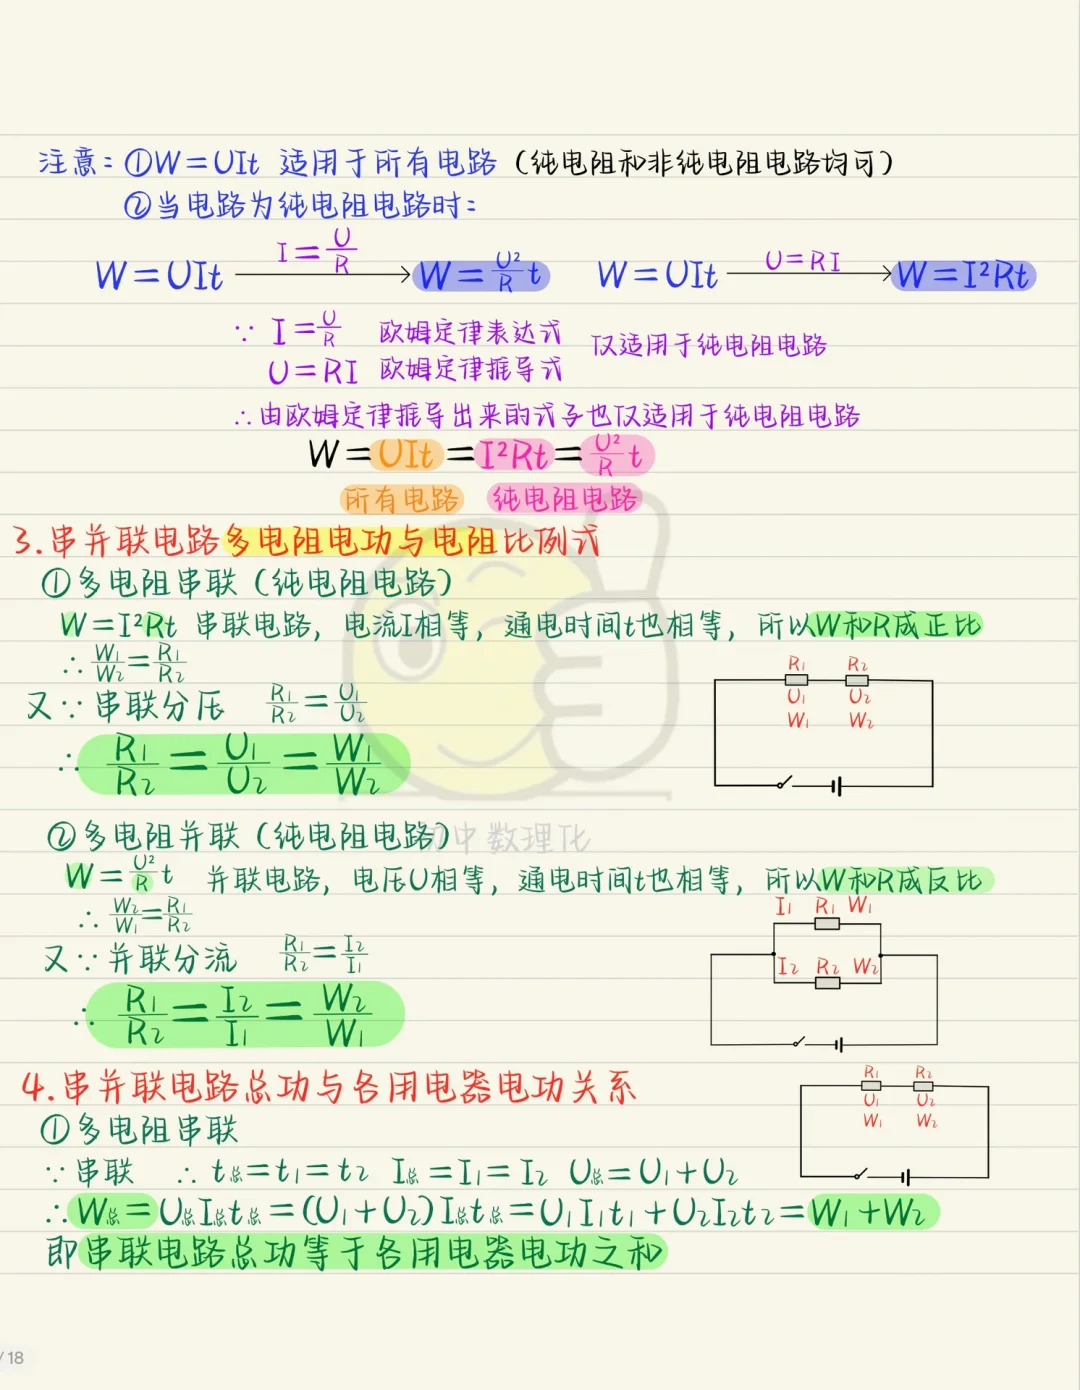 注意：①W=UIt 适用于所有电路（纯电阻和非纯电阻电路均可）
②当电路为纯电阻电路时：
W=UIt I=U/R → W=U²/R t W=UIt U=RI → W=I²Rt
∵ I=U/R 欧姆定律表达式 仅适用于纯电阻电路
U=RI 欧姆定律推导式
∴由欧姆定律推导出来的式子也仅适用于纯电阻电路
W=UIt=I²Rt=U²/R t
所有电路 纯电阻电路
3.串并联电路多电阻电功与电阻比例式
①多电阻串联（纯电阻电路）
W=I²Rt 串联电路，电流I相等，通电时间t也相等，所以W和R成正比
∴ W₁/W₂=R₁/R₂
又∵串联分压 R₁/R₂=U₁/U₂
∴ R₁/R₂=U₁/U₂=W₁/W₂
R₁ R₂
U₁ U₂
W₁ W₂
②多电阻并联（纯电阻电路）
初中数理化
W=U²/R t 并联电路，电压U相等，通电时间t也相等，所以W和R成反比
∴ W₂/W₁=R₁/R₂
又∵并联分流 R₁/R₂=I₂/I₁
∴ R₁/R₂=I₂/I₁=W₂/W₁
I₁ R₁ W₁
I₂ R₂ W₂
4.串并联电路总功与各用电器电功关系
①多电阻串联
R₁ R₂
U₁ U₂
W₁ W₂
∵串联 ∴t总=t₁=t₂ I总=I₁=I₂ U总=U₁+U₂
∴W总=U总I总t总=(U₁+U₂)I总t总=U₁I₁t₁+U₂I₂t₂=W₁+W₂
即串联电路总功等于各用电器电功之和
/18